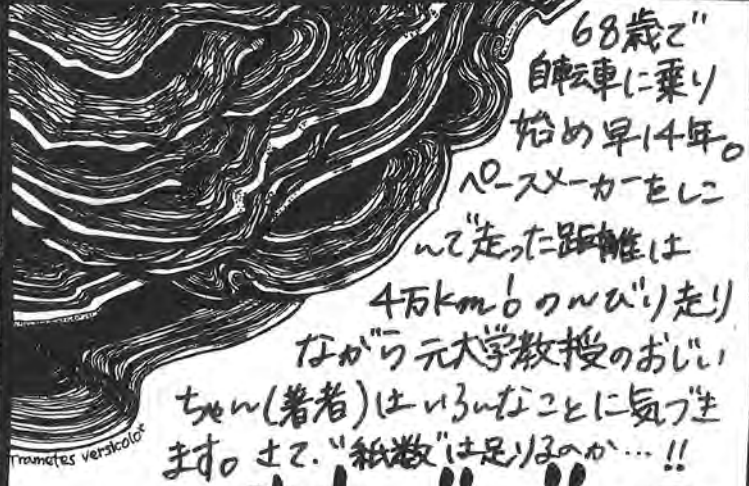 68歳で
自転車に乗り
始め早14年。
ペースメーカーをしこ
んで走った距離は
4万km！のんびり走り
ながら元大学教授のおじい
ちゃん(著者)はいろんなことに気づき
ます。さて、"紙数"は足りるのか…!!
Trametes versicolor